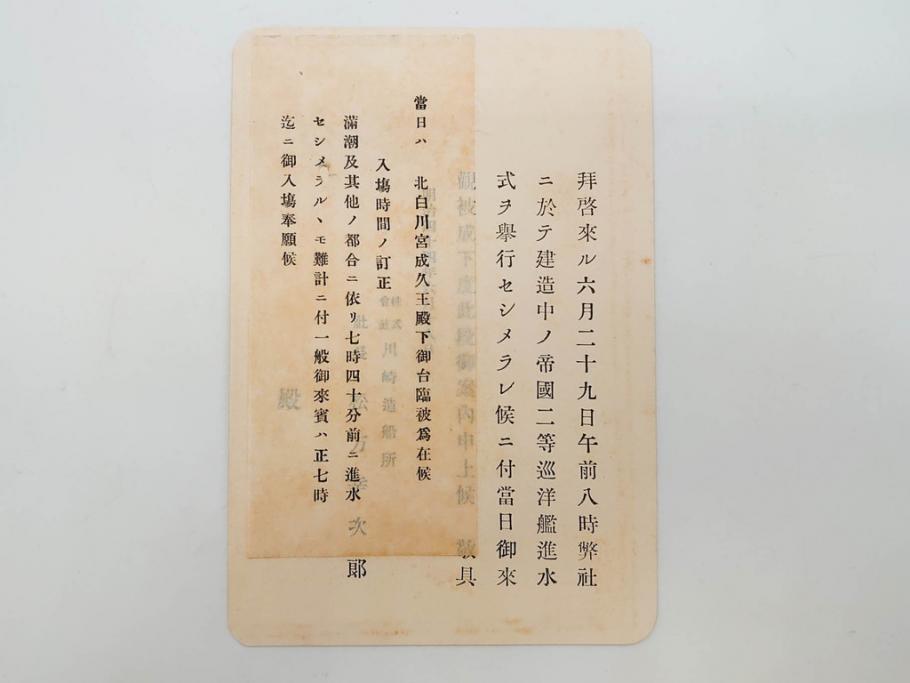 拜啓來ル六月二十九日午前八時弊社
ニ於テ建造中ノ帝國二等巡洋艦進水
式ヲ擧行セシメラレ候ニ付當日御來
觀被成下度此段御案內申上候 敬具
當日ハ 北白川宮成久王殿下御台臨被爲在候
入塲時間ノ訂正
滿潮及其他ノ都合ニ依リ七時四十分前ニ進水
セシメラルヽモ難計ニ付一般御來賓ハ正七時
迄ニ御入塲奉願候
明治四十四年六月
株式會社川崎造船所
社長 松方幸次郞
殿